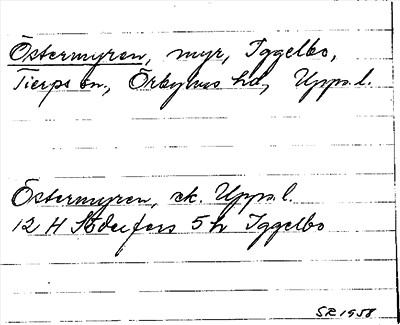 Östermyren, myr, Iggelbo,
Tierps sn, Örbyhus hd, Upps. l.
Östermyren, ek. Upps. l.
12 H Söderfors 5 h Iggelbo
SR 1958